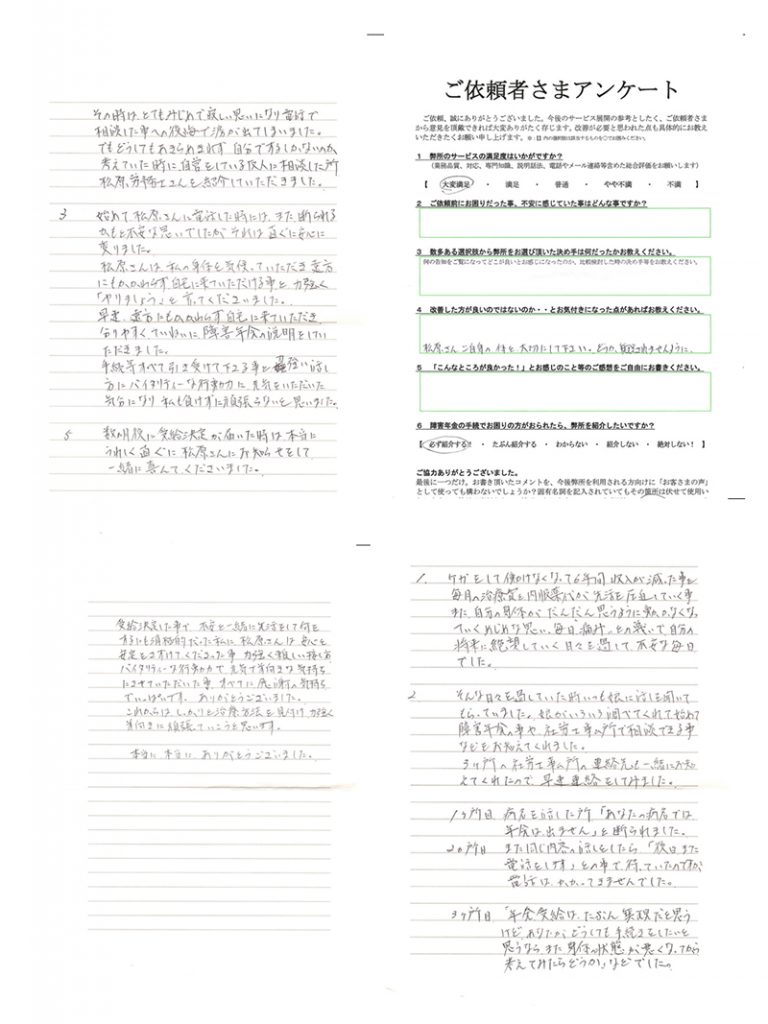 その時はとてもみじめで寂しい思いになり電話で
相談した事への後悔で涙が出てしまいました。
でもどうしてもあきらめきれず自分でするしかないのか
考えていた時に自営をしている友人に相談した所
松原労務士さんを紹介していただきました。
3 始めて松原さんに電話した時には、また断られる
かもと不安な思いでしたがそれは直ぐに安心に
変りました。
松原さんは私の身体を気使っていただき遠方
にもかかわらず自宅に来ていただける事と力強く
「やりましょう」と言ってくださいました。
早速、遠方にもかかわらず自宅に来ていただき、
分りやすく、ていねいに障害年金の説明をしてい
ただきました。
手続等すべて引き受けて下さる事と 強い話し
方にバイタリティーな行動力に元気をいただいた
気分になり私も負けずに頑張らないと思いました。
5 数ヶ月後に受給決定が届いた時は本当に
うれしく直ぐに松原さんにお知らせをして
一緒に喜んでくださいました。
ご依頼者さまアンケート
ご依頼、誠にありがとうございました。今後のサービス展開の参考としたく、ご依頼者さま
から意見を頂戴できれば大変ありがたく存じます。改善が必要と思われた点も具体的にお教え
いただきたくお願い申し上げます。
1 弊所のサービスの満足度はいかがですか?
(業務品質、対応、専門知識、説明話法、電話やメール連絡等含めた総合評価をお願いします)
【 大変満足 ・ 満足 ・ 普通 ・ やや不満 ・ 不満 】
2 ご依頼前にお困りだった事、不安に感じていた事はどんな事ですか?
3 数多ある選択肢から弊所をお選び頂いた決め手は何だったかお教えください。
例の告知をご覧になってどこが良いとお感じになったのか、比較検討した時の決め手等をお教えください。
4 改善した方が良いのではないのか・・とお気付きになった点があればお教えください。
松原さんご自身の体を大切にして下さい。どうか無理されませんように。
5 「こんなところが良かった!」とお感じのこと等のご感想をご自由にお書きください。
6 障害年金の手続でお困りの方がおられたら、弊所を紹介したいですか?
【 必ず紹介する!! ・ たぶん紹介する ・ わからない ・ 紹介しない ・ 絶対しない! 】
ご協力ありがとうございました。
最後に一つだけ。お書き頂いたコメントを、今後弊所を利用される方向けに「お客さまの声」
として使っても構わないでしょうか?固有名詞を記入されていてもその箇所は伏せて使用い
受給決定した事で、不安と一緒に生活をして何を
するにも消極的だった私に松原さんは安心と
安定を授けてくださった事 力強く優しい接し方
バイタリティーな行動力で元気で前向きな気持ち
にさせていただいた事、すべてに感謝の気持ち
でいっぱいです。ありがとうございました。
これからはしっかりと治療方法を見付け力強く
前向きに頑張っていこうと思います。
本当に本当に、ありがとうございました。
1. ケガをして働けなくなって6年間収入が減った事と
毎月の治療費と内服薬代が生活を圧迫していく事
また、自分の身体がだんだん思うように動かなくなっ
ていくみじめな思い、毎日"痛み"との戦いで自分の
将来に絶望していく日々を過して、不安な毎日
でした。
2 そんな日々を過していた時いつも娘に話しを聞いて
もらっていました。娘がいろいろ調べてくれて始めて
障害年金の事や、社労士事ム所で相談できる事
などをお知えてくれました。
3ヶ所の社労士事ム所の連絡先も一緒にお知
えてくれたので、早速連絡をしてみました。
1ヶ所目 病名を話した所「あなたの病名では
年金は出ません」と断られました。
2ヶ所目 また同じ内容の話しをしたら、「後日また
電話をします」との事で待っていたのですが
電話はかかってきませんでした。
3ヶ所目 「年金受給は、たぶん無理だと思う
けど、あなたがどうしても手続をしたいと
思うなら、また身体の状態が悪くなってから
考えてみたらどうか」などでした。